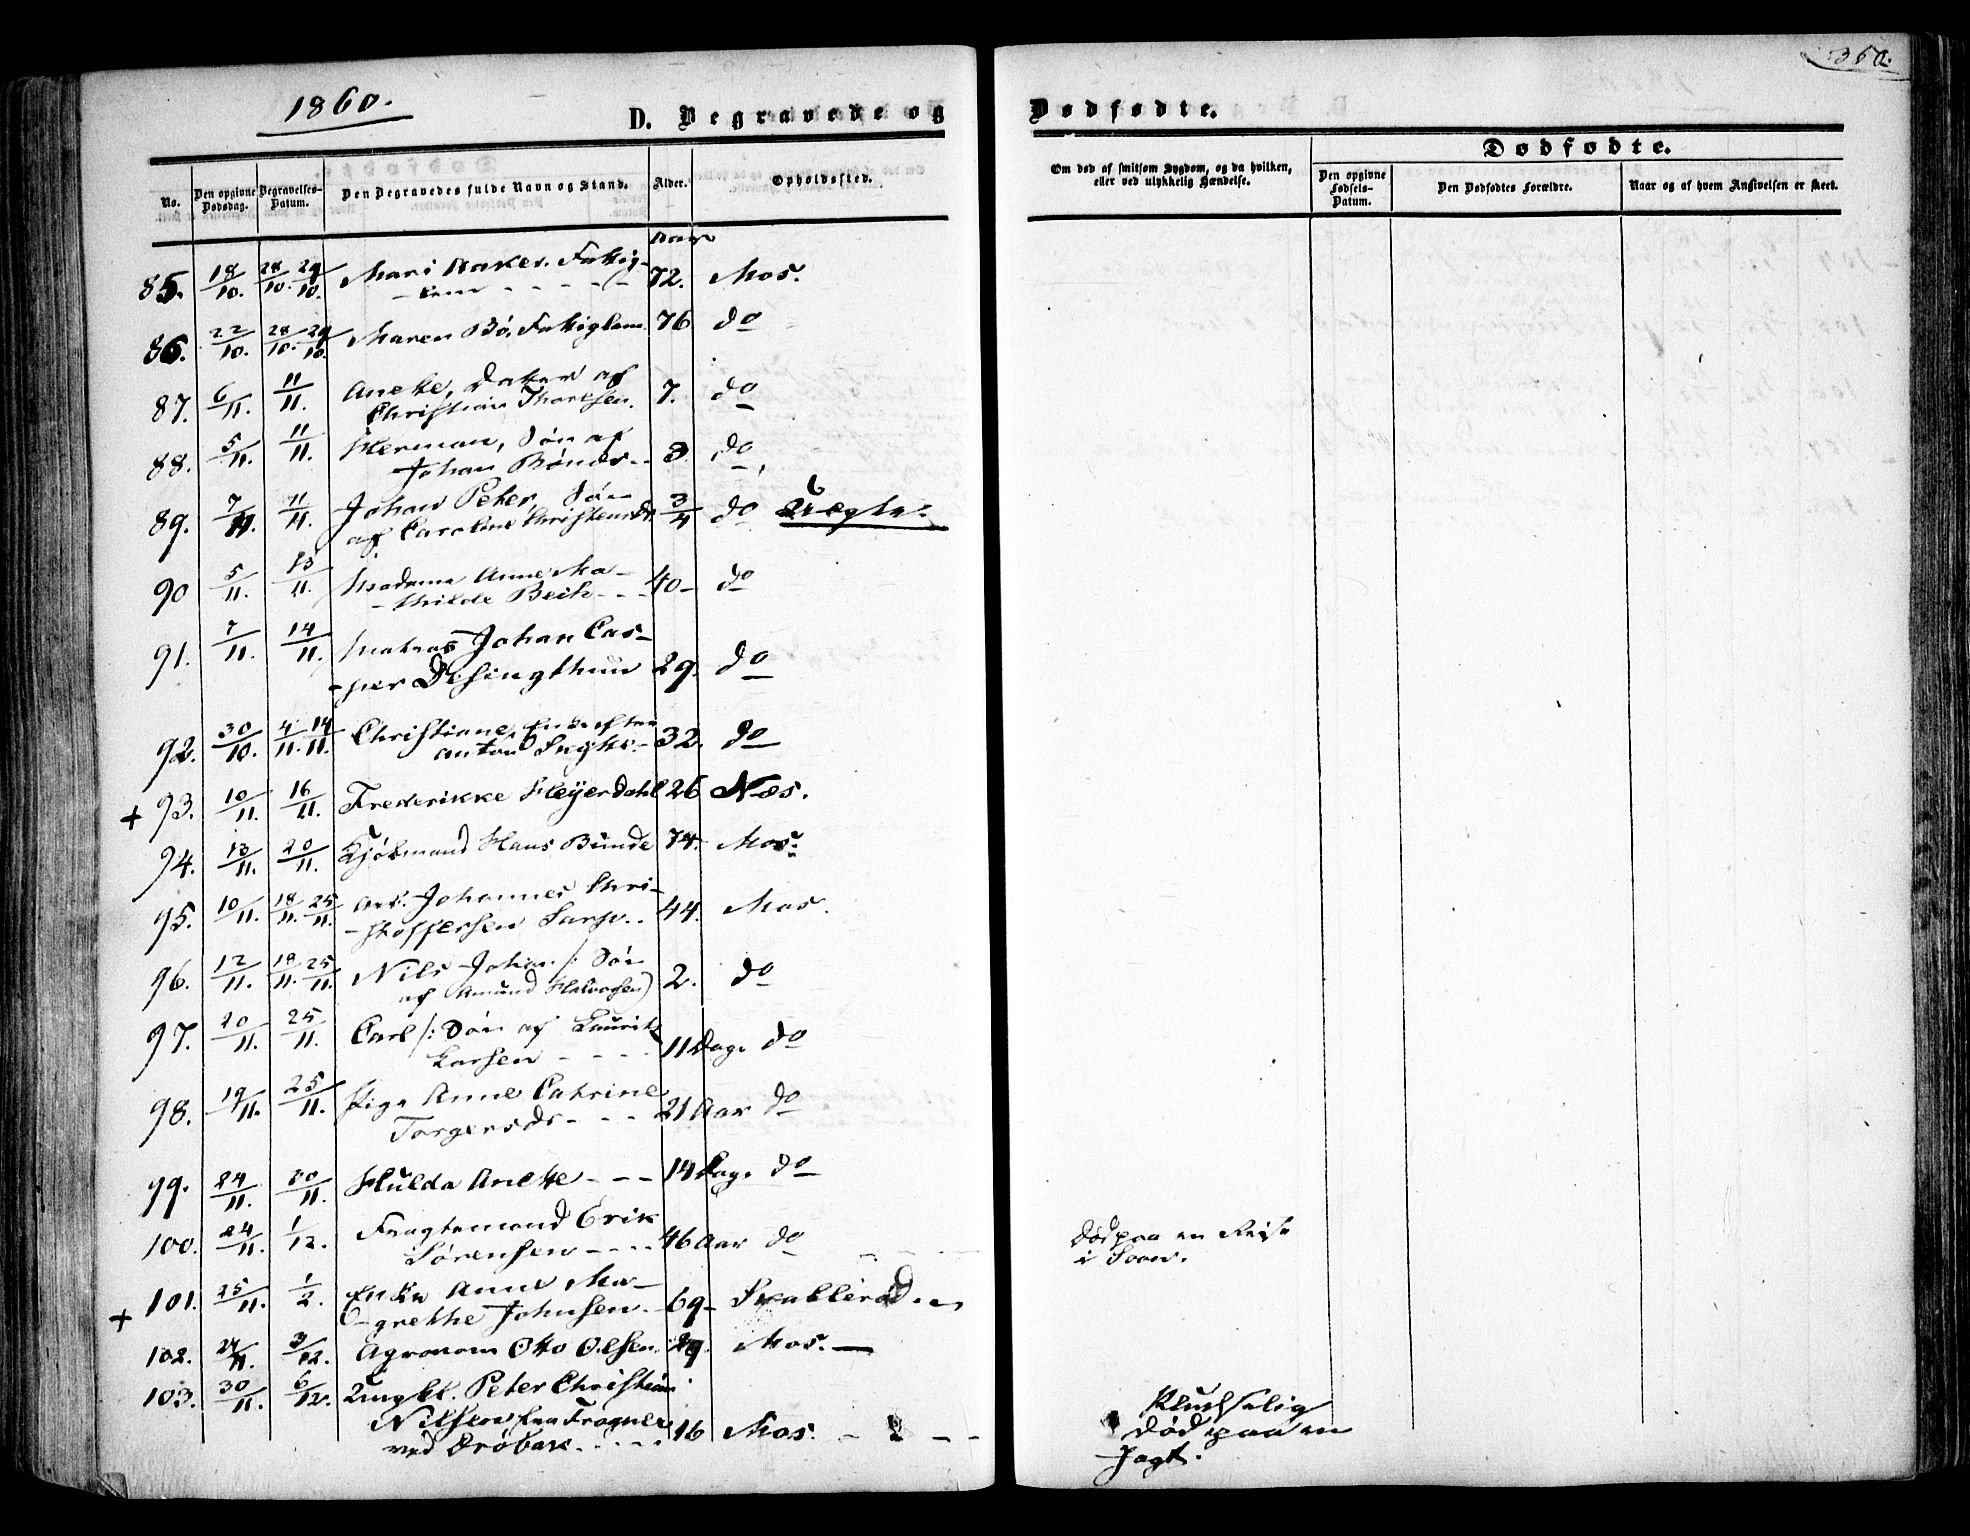 1860.
360.
D. Begravede og Dødfødte.
No.
Den opgivne Dødsdag.
Begravelses-Datum.
Den Begravedes fulde Navn og Stand.
Alder.
Opholdssted.
Om død af smitsom Sygdom, og da hvilken, eller ved ulykkelig Hændelse.
Dødfødte.
Den opgivne Fødsels-Datum.
Den Dødfødtes Forældre.
Naar og af hvem Angivelsen er skeet.
Aar
85. 18/10. 28/10. 29/10. Mari Aaker. Fattig-
- lem - - - - 72. Mos.
86. 22/10. 28/10. 29/10. Maren Bø, Fattiglem. 76 do
87. 6/11. 11/11. Anette, Datter af
Christian Thoresen. 7. do
88. 5/11. 11/11. Herman, Søn af
Johan Bønes - - 3. do
89. 7/11. 11/11. Johan Peter, Søn
af Caroline Christensdr. 3/4 do Uægte.
90 5/11. 13/11. Madame Anne Ma-
- thilde Bech - - - 40 - do
91. 7/11. 14/11. Matros Johan Cas-
- per Desingthun 29. do
92. 30/10. 4/11. 14/11. Christiane, Enke efter
Anton - 32. do
+ 93. 10/11. 16/11. Frederikke Heyerdahl 26 Næs.
94. 13/11. 20/11. Kjøbmand Hans Bunde 74. Mos.
95. 10/11. 18/11. 25/11. Arb. Johannes Chri-
- stoffersen - - 44. Mos.
96. 12/11. 18/11. 25/11. Nils Johan /: Søn
af Amund Halvorsen) 2. do
97. 20/11. 25/11. Carl /: Søn af Lauritz
Larsen - - - - 11 Dage do
98. 19/11. 25/11. Pige Anne Catrine
Torgersdr - - - 21 Aar do
99. 24/11. 30/11. Hulda Anette - - - 14 Dage do
100. 24/11. 1/12. Fragtemand Erik
Sørensen - - - - 46 Aar do
Død paa en Reise
i Soon.
+ 101. 25/11. 1/2. Enke Anne Ma-
- grethe Johnsen. - 69 - Skallerød - -
102. 3/12. Agronom Otto Olsen. 29. Mos. -
103. 30/11. 6/12. Ungkl. Peter Christian
Nilsen fra Frogner
ved Drøbak - - - - 16 Mos. - - -
Pludselig
død paa en
Jagt.